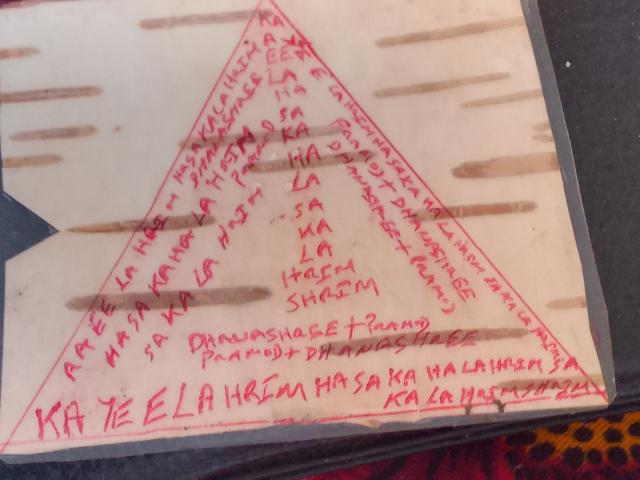 KA
A
EE
LA
HA
SA
KA
HA
LA
SA
KA
LA
HRIM
SHRIM
AA EE LA HRIM HASAKALAHRIM
HASA KAHA LA HRIM
SA KA LA HRIM
DHANASHREE
PRAMOD
E LA HRIM HASAKA HA LA HRIM SA KA LA HRIM
PRAMOD + DHANASHREE
DHANASHREE + PRAMOD
DHANASHREE + PRAMOD
PRAMOD + DHANASHREE
KA YE E LA HRIM HASA KA HA LA HRIM SA
KA LA HRIM SHRIM